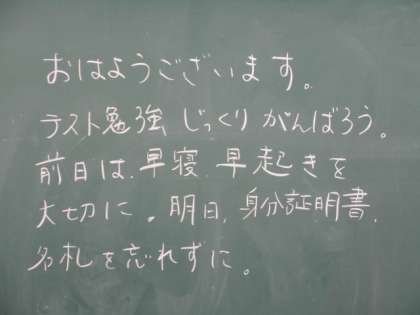 おはようございます。
テスト勉強 じっくり がんばろう。
前日は、早寝、早起きを
大切に。明日、身分証明書、
名札を忘れずに。